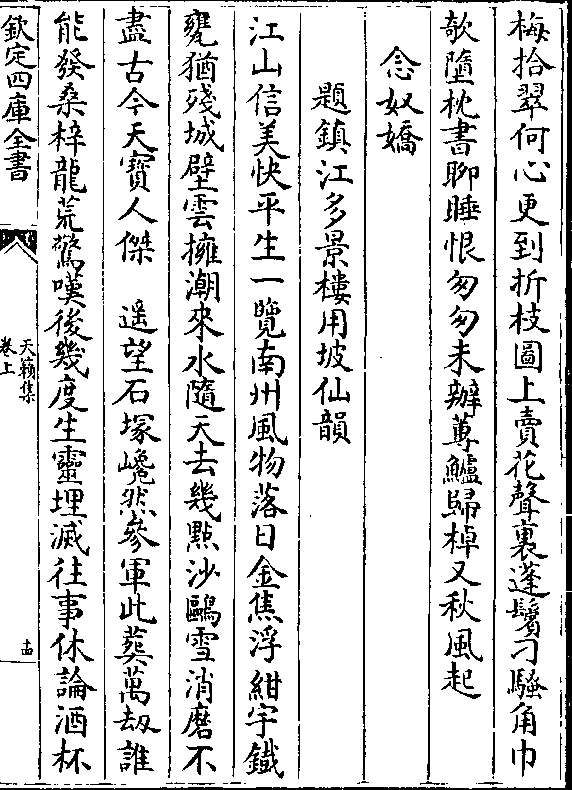 梅拾翠何心更到折枝圖上賣花聲裏蓬鬢刁騷角巾
欹墮枕書聊睡恨匆匆未辦蓴鱸歸棹又秋風起
念奴嬌
題鎮江多景樓用坡仙韻
江山信美快平生一覽南州風物落日金焦浮紺宇鐵
甕猶殘城壁雲擁潮來水隨天去幾點沙鷗雪消磨不
盡古今天寶人傑　遥望石塚巉然參軍此葬萬劫誰
能發桑梓龍荒驚嘆後幾度生靈埋滅往事休論酒杯
欽定四庫全書
天籟集
卷上
十四